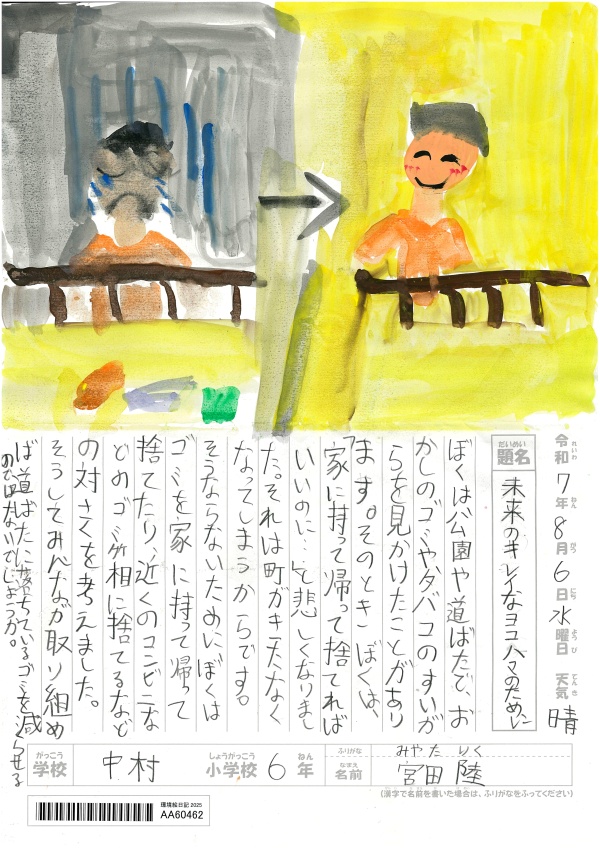 令和7年8月6日水曜日 天気 晴
れいわ ねん がつ にち ようび てんき
だいめい
題名 未来のキレイなヨコハマのために
ぼくは公園や道ばたで、お
かしのゴミやタバコのすいが
らを見かけたことがあり
ます。そのときぼくは、
「家に持って帰って捨てれば
いいのに…」と悲しくなりまし
た。それは町がキタナく
なってしまうからです。
そうならないためにぼくは
ゴミを家に持って帰って
捨てたり、近くのコンビニな
どのゴミ箱に捨てるなど
の対さくを考えました。
そうしてみんなが取り組め
ば道ばたに落ちているゴミを減らせる
のではないでしょうか。
がっこう しょうがっこう ねん
学校 中村 小学校 6年
ふりがな みやた りく
なまえ
名前 宮田 陸
(漢字で名前を書いた場合は、ふりがなをふってください)
環境絵日記 2025
AA60462